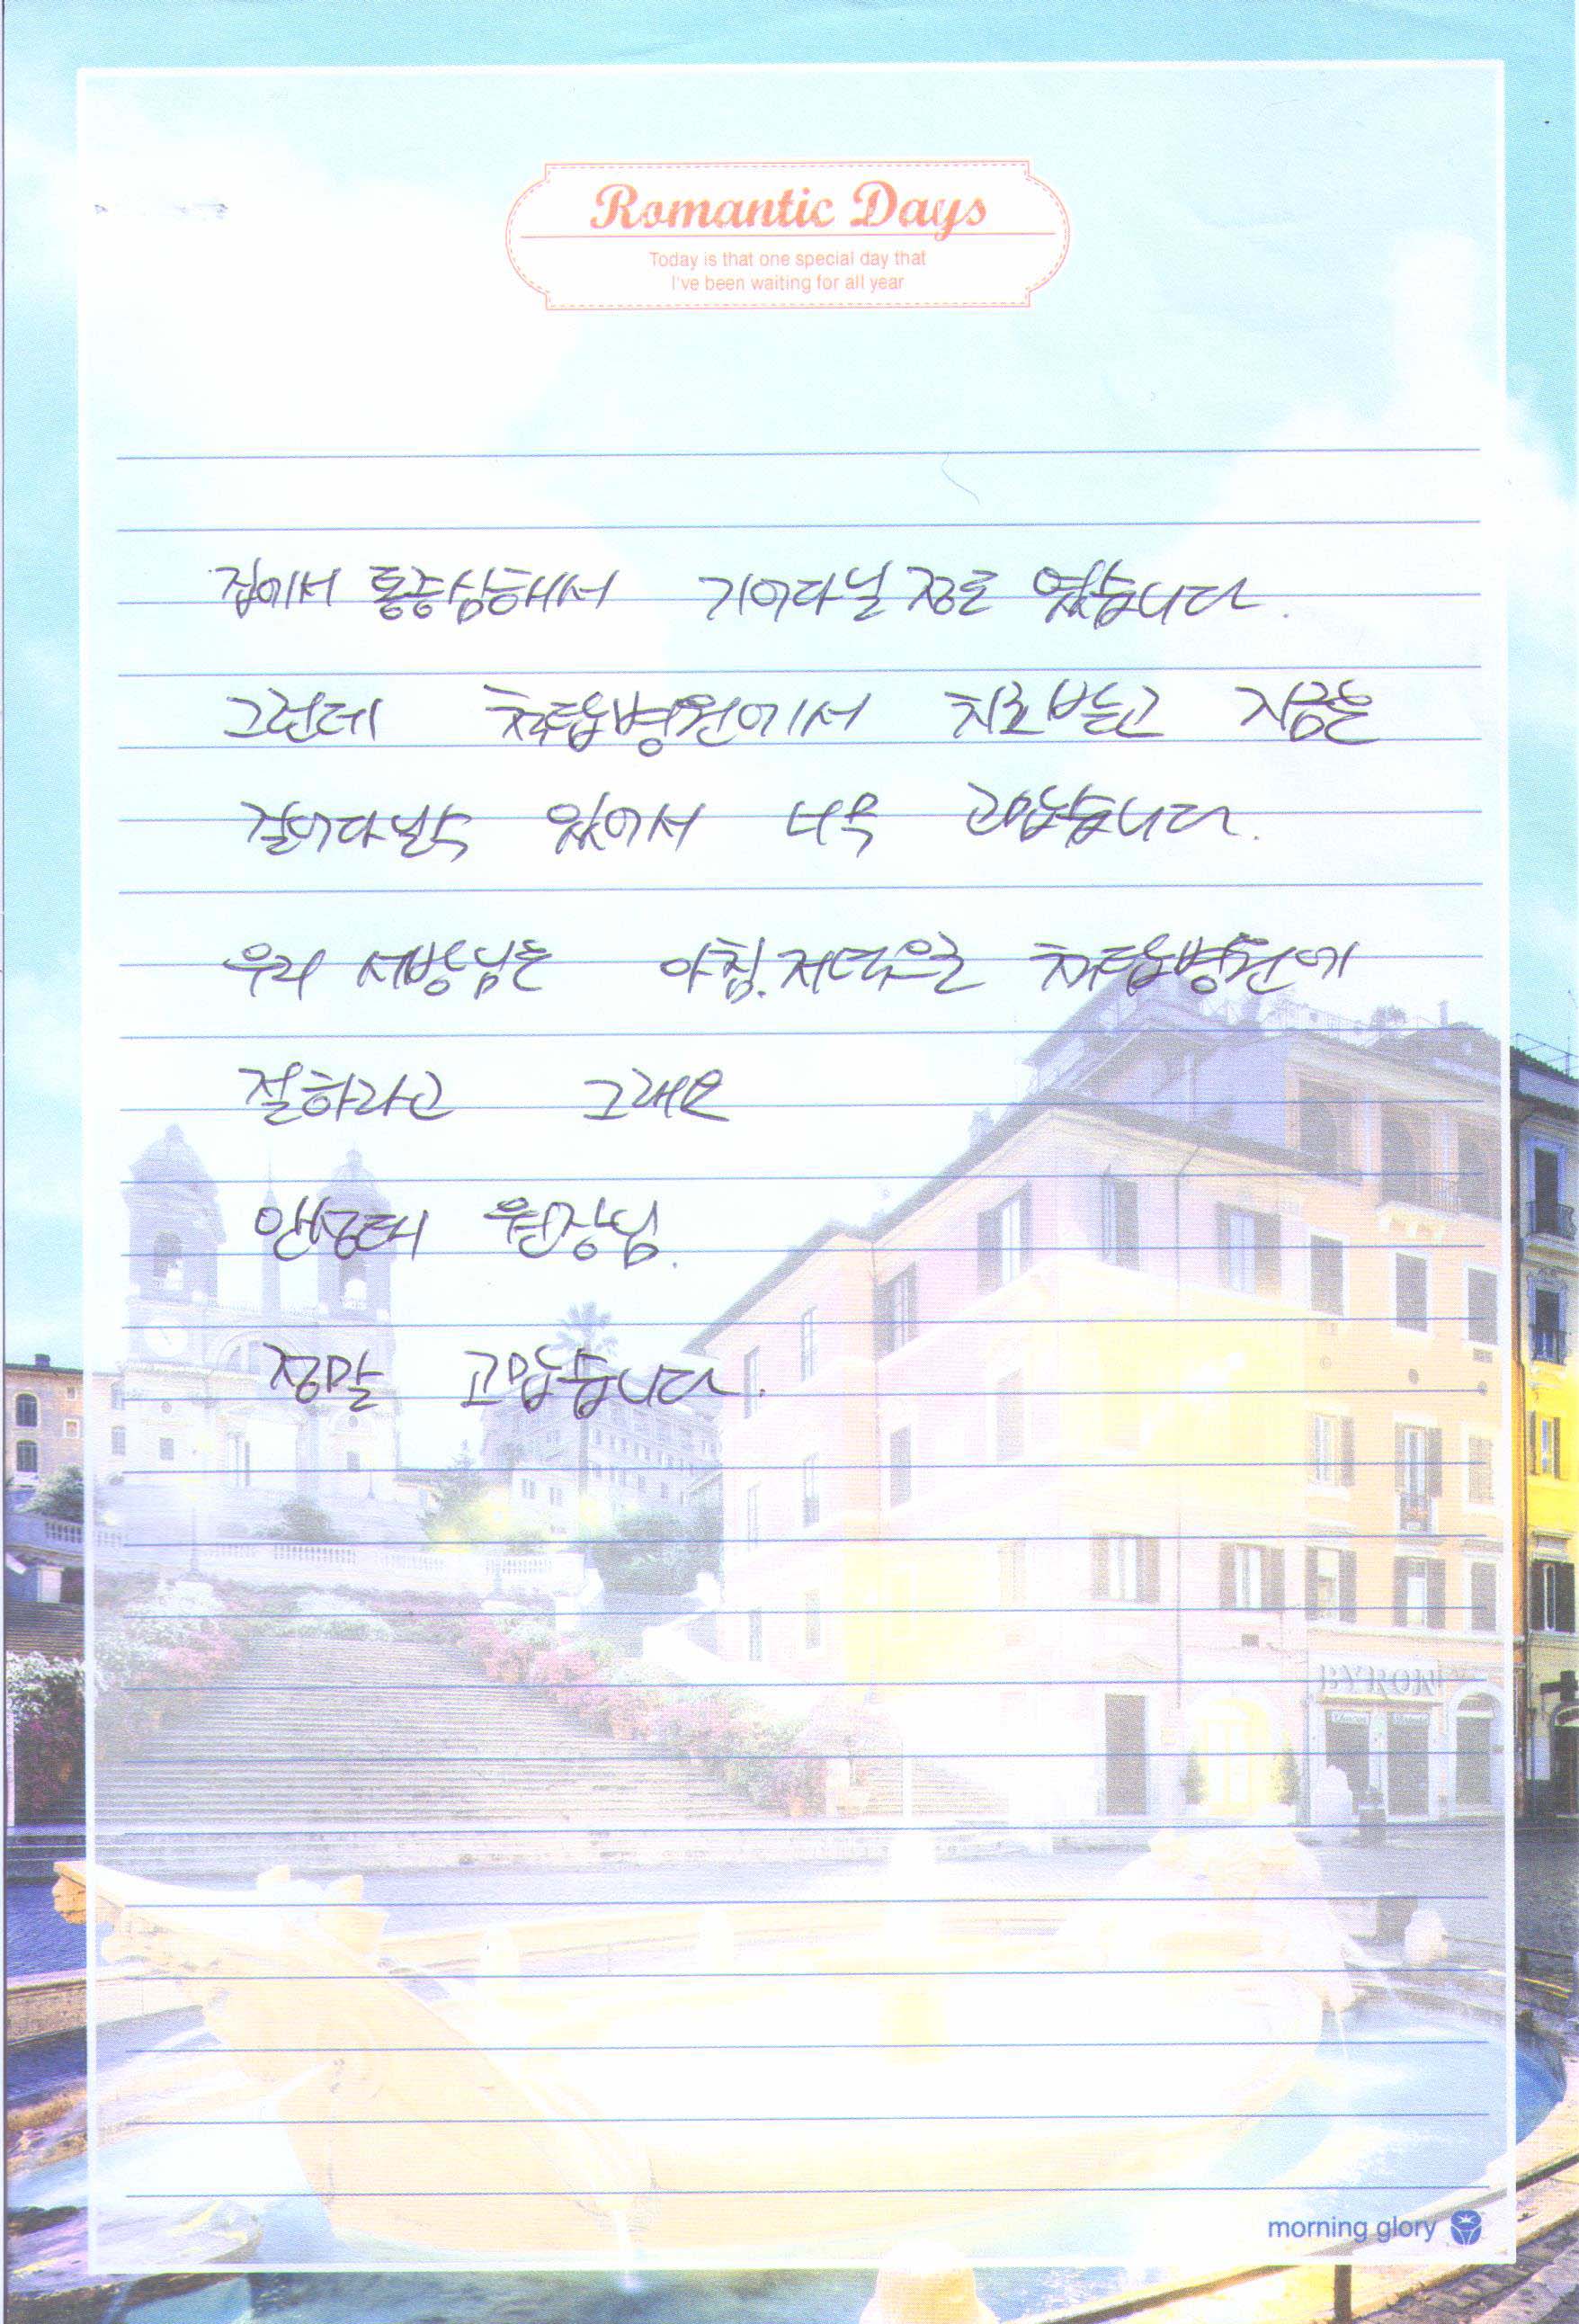 Romantic Days
Today is that one special day that
I've been waiting for all year
집에서 통증심해서 기어다닐 정도 였습니다.
그런데 척추탑병원에서 치료받고 지금은
걸어다닐수 있어서 너무 고맙습니다.
우리 서방님은 아침.저녁으로 척추탑병원에
절하라고 그래요
원장님.
정말 고맙습니다.
BYRON
morning glory